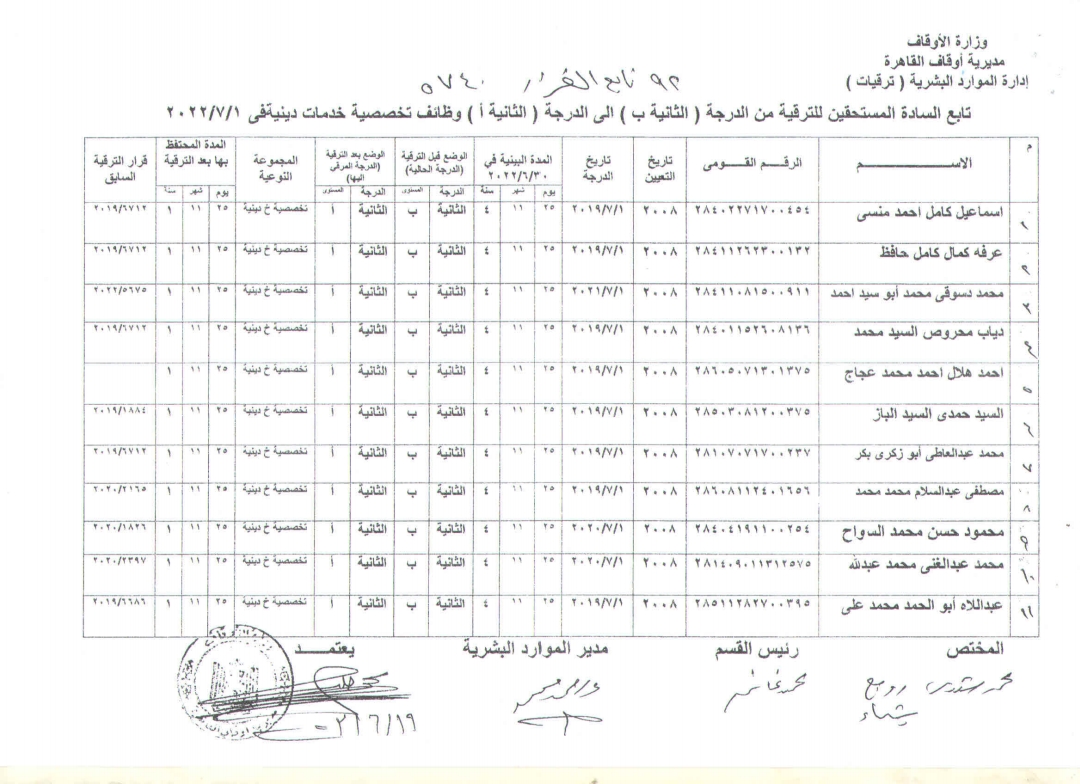 وزارة الأوقاف
مديرية أوقاف القاهرة
إدارة الموارد البشرية ( ترقيات )
٩٢ تابع القرار ٥٧٤٠
تابع السادة المستحقين للترقية من الدرجة ( الثانية ب ) الى الدرجة ( الثانية أ ) وظائف تخصصية خدمات دينيةفى ٢٠٢٢/٧/١
م الاســـــــــم الرقـم القـــومى تاريخ التعيين تاريخ الدرجة المدة البينية في ٢٠٢٢/٦/٣٠ الوضع قبل الترقية (الدرجة الحالية) الوضع بعد الترقية (الدرجة المرقي اليها) المجموعة النوعية المدة المحتفظ بها بعد الترقية قرار الترقية السابق
يوم شهر سنة الدرجة المستوى الدرجة المستوى يوم شهر سنة
١ اسماعيل كامل احمد منسى ٢٨٤٠٢٢٧١٧٠٠٤٥٤ ٢٠٠٨ ٢٠١٩/٧/١ ٢٥ ١١ ٤ الثانية ب الثانية أ تخصصية خ دينية ٢٥ ١١ ١ ٢٠١٩/٦٧١٢
٢ عرفه كمال كامل حافظ ٢٨٤١١٢٦٢٣٠٠١٣٢ ٢٠٠٨ ٢٠١٩/٧/١ ٢٥ ١١ ٤ الثانية ب الثانية أ تخصصية خ دينية ٢٥ ١١ ١ ٢٠١٩/٦٧١٢
٣ محمد دسوقى محمد أبو سيد احمد ٢٨٤١١٠٨١٥٠٠٩١١ ٢٠٠٨ ٢٠٢١/٧/١ ٢٥ ١١ ٤ الثانية ب الثانية أ تخصصية خ دينية ٢٥ ١١ ١ ٢٠٢٢/٥٦٧٥
٤ دياب محروص السيد محمد ٢٨٤٠١١٥٢٦٠٨١٣٦ ٢٠٠٨ ٢٠١٩/٧/١ ٢٥ ١١ ٤ الثانية ب الثانية أ تخصصية خ دينية ٢٥ ١١ ١ ٢٠١٩/٦٧١٢
٥ احمد هلال احمد محمد عجاج ٢٨٦٠٥٠٧١٣٠١٣٧٥ ٢٠٠٨ ٢٠١٩/٧/١ ٢٥ ١١ ٤ الثانية ب الثانية أ تخصصية خ دينية ٢٥ ١١ ١
٦ السيد حمدى السيد الباز ٢٨٥٠٣٠٨١٢٠٠٣٧٥ ٢٠٠٨ ٢٠١٩/٧/١ ٢٥ ١١ ٤ الثانية ب الثانية أ تخصصية خ دينية ٢٥ ١١ ١ ٢٠١٩/١٨٨٤
٧ محمد عبدالعاطى أبو زكرى بكر ٢٨١٠٧٠٧١٧٠٠٢٣٧ ٢٠٠٨ ٢٠١٩/٧/١ ٢٥ ١١ ٤ الثانية ب الثانية أ تخصصية خ دينية ٢٥ ١١ ١ ٢٠١٩/٦٧١٢
٨ مصطفى عبدالسلام محمد محمد ٢٨٦٠٨١١٢٤٠١٦٥٦ ٢٠٠٨ ٢٠١٩/٧/١ ٢٥ ١١ ٤ الثانية ب الثانية أ تخصصية خ دينية ٢٥ ١١ ١ ٢٠٢٠/٢١٦٥
٩ محمود حسن محمد السواح ٢٨٤٠٤١٩١١٠٠٢٥٤ ٢٠٠٨ ٢٠٢٠/٧/١ ٢٥ ١١ ٤ الثانية ب الثانية أ تخصصية خ دينية ٢٥ ١١ ١ ٢٠٢٠/١٨٢٦
١٠ محمد عبدالغنى محمد عبدالله ٢٨١٤٠٩٠١١٣١٢٥٧٥ ٢٠٠٨ ٢٠٢٠/٧/١ ٢٥ ١١ ٤ الثانية ب الثانية أ تخصصية خ دينية ٢٥ ١١ ١ ٢٠٢٠/٢٣٩٧
١١ عبداللاه أبو الحمد محمد على ٢٨٥١١٢٨٢٧٠٠٣٩٥ ٢٠٠٨ ٢٠١٩/٧/١ ٢٥ ١١ ٤ الثانية ب الثانية أ تخصصية خ دينية ٢٥ ١١ ١ ٢٠١٩/٦٦٨٦
المختص رئيس القسم مدير الموارد البشرية يعتمـــد
محمد غانم
شيماء
٢١٦/١٩